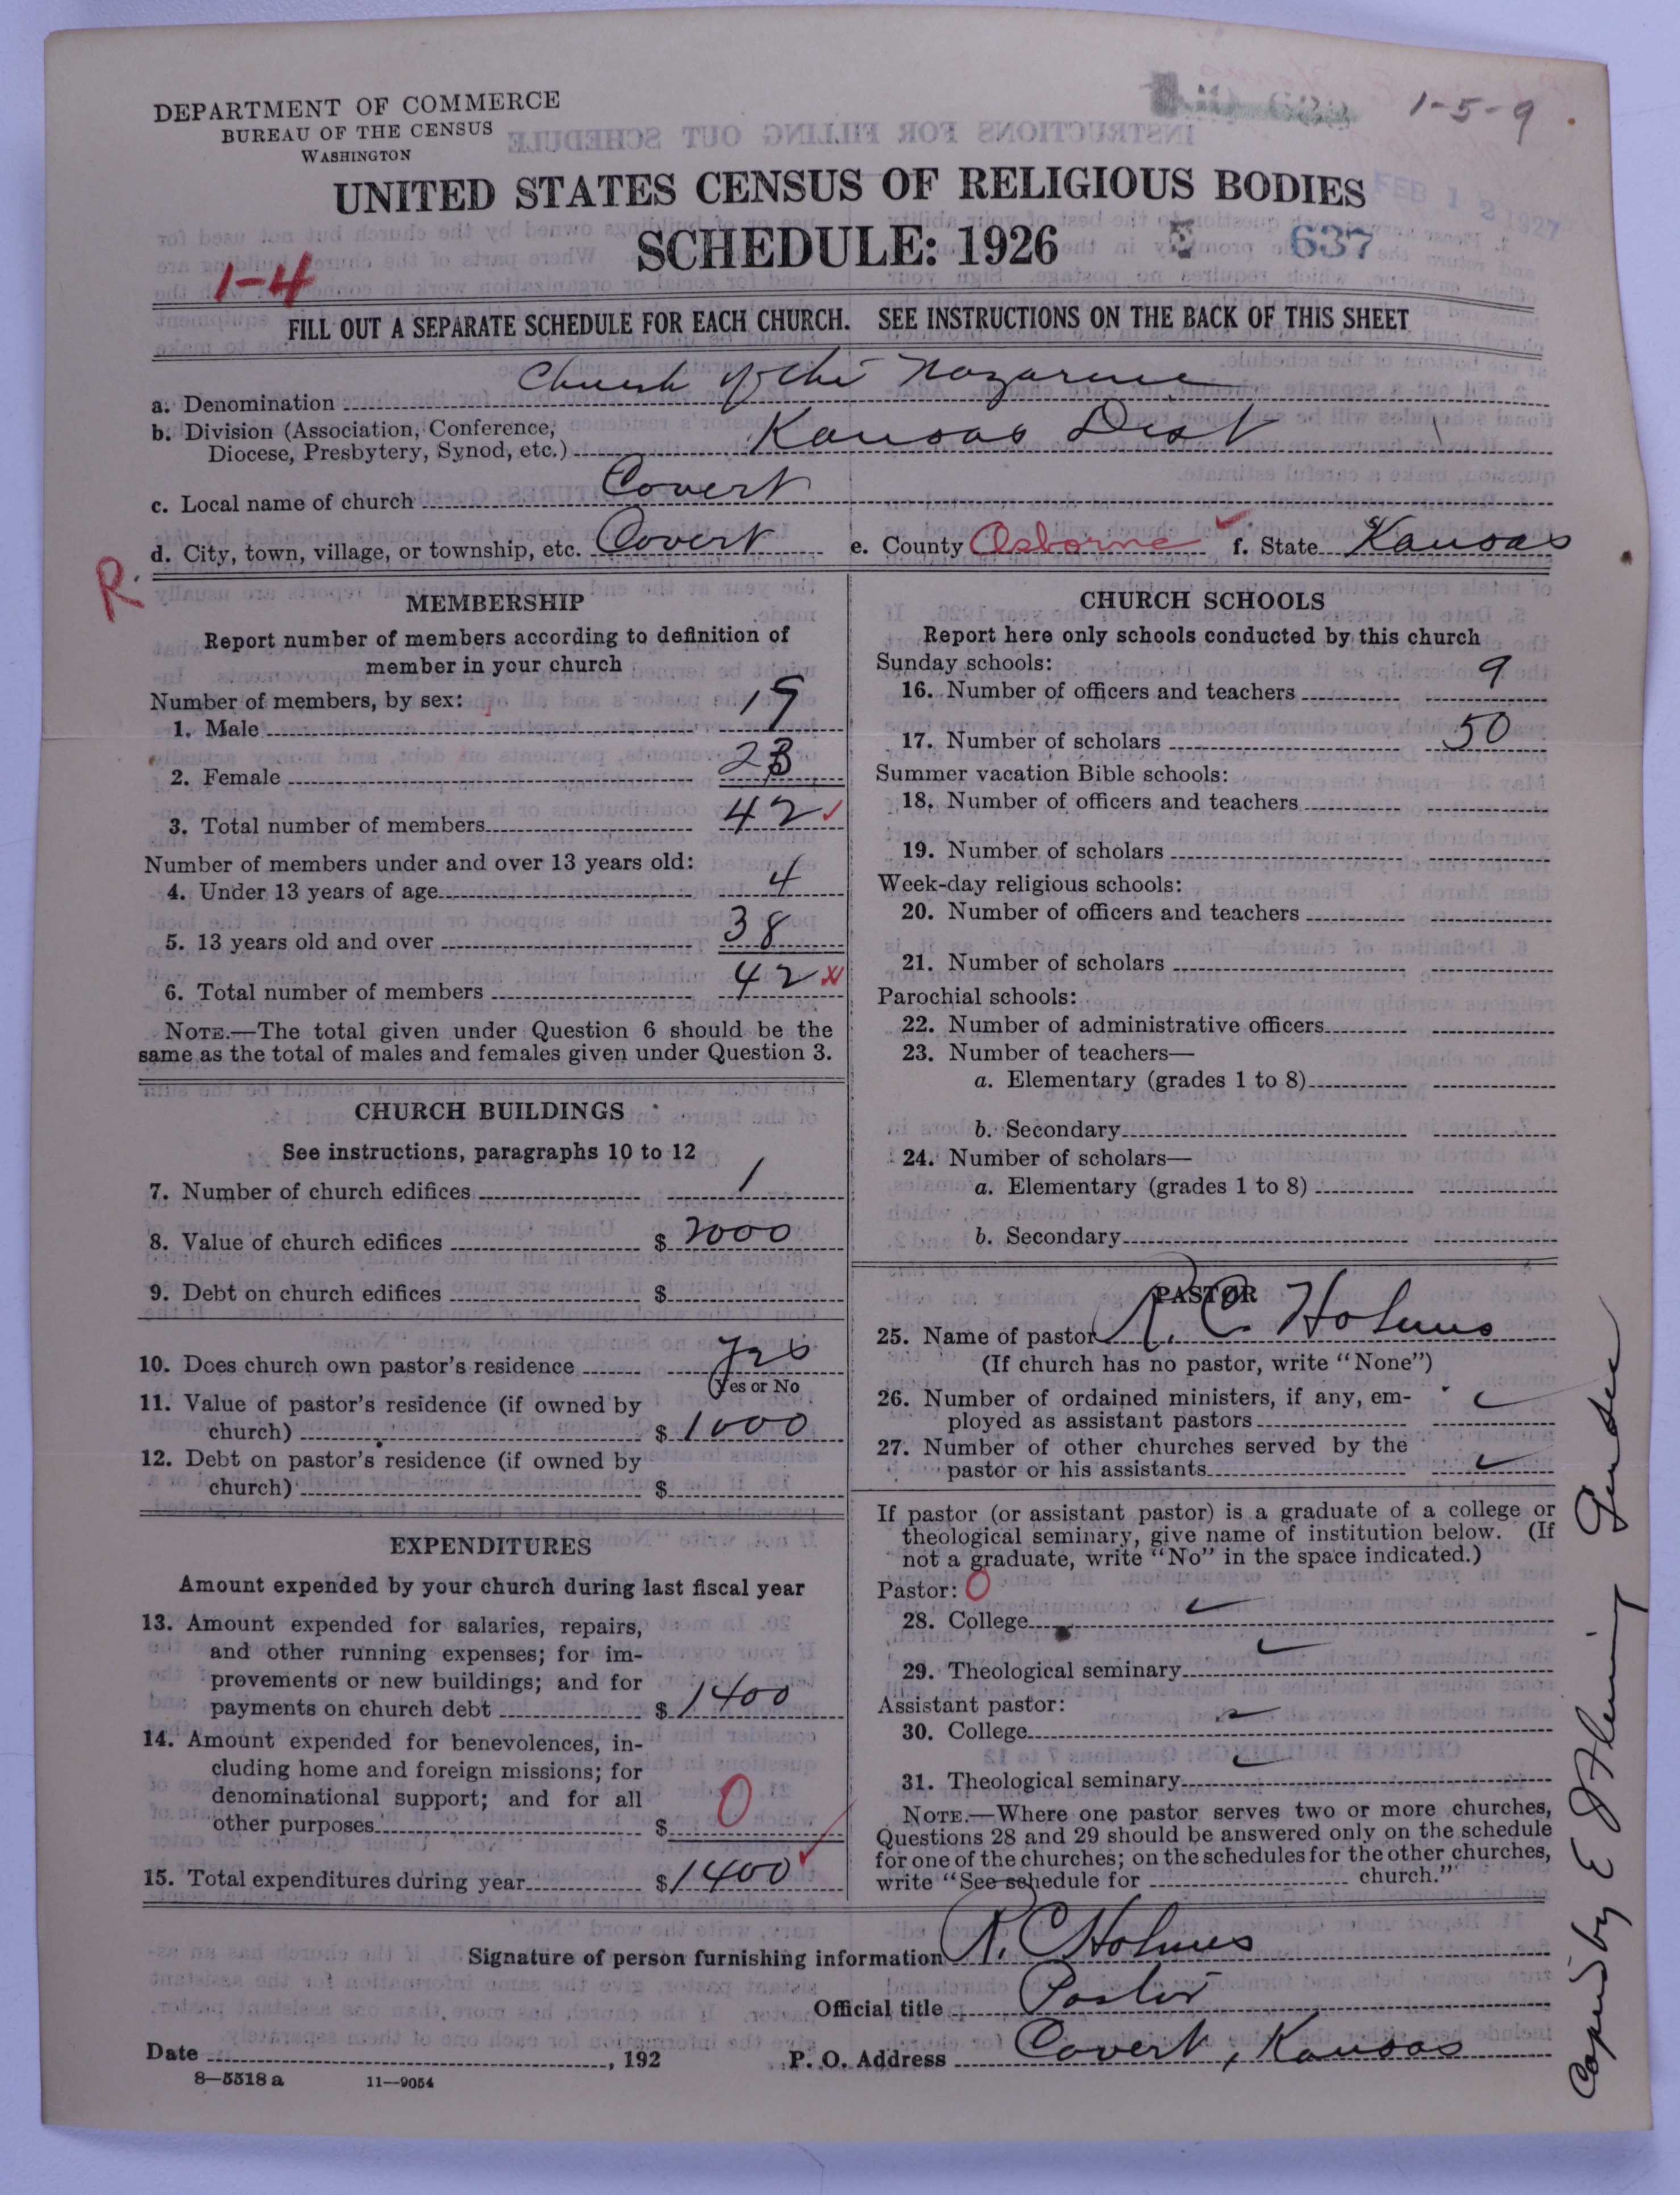 DEPARTMENT OF COMMERCE
BUREAU OF THE CENSUS
WASHINGTON
1-5-9
FEB 12 1927
UNITED STATES CENSUS OF RELIGIOUS BODIES
SCHEDULE: 1926
637
1-4
FILL OUT A SEPARATE SCHEDULE FOR EACH CHURCH. SEE INSTRUCTIONS ON THE BACK OF THIS SHEET
a. Denomination Church of the Nazarene
b. Division (Association, Conference,
Diocese, Presbytery, Synod, etc.) Kansas Dist
c. Local name of church Covert
d. City, town, village, or township, etc. Covert e. County Osborne f. State Kansas
R
MEMBERSHIP
Report number of members according to definition of
member in your church
Number of members, by sex:
1. Male 19
2. Female 23
3. Total number of members 42
Number of members under and over 13 years old:
4. Under 13 years of age 4
5. 13 years old and over 38
6. Total number of members 42
NOTE.—The total given under Question 6 should be the
same as the total of males and females given under Question 3.
CHURCH BUILDINGS
See instructions, paragraphs 10 to 12
7. Number of church edifices 1
8. Value of church edifices $ 2000
9. Debt on church edifices $
10. Does church own pastor's residence Yes
(Yes or No
11. Value of pastor's residence (if owned by
church) $ 1000
12. Debt on pastor's residence (if owned by
church) $
EXPENDITURES
Amount expended by your church during last fiscal year
13. Amount expended for salaries, repairs,
and other running expenses; for im-
provements or new buildings; and for
payments on church debt $ 1400
14. Amount expended for benevolences, in-
cluding home and foreign missions; for
denominational support; and for all
other purposes $ 0
15. Total expenditures during year $ 1400
CHURCH SCHOOLS
Report here only schools conducted by this church
Sunday schools:
16. Number of officers and teachers 9
17. Number of scholars 50
Summer vacation Bible schools:
18. Number of officers and teachers
19. Number of scholars
Week-day religious schools:
20. Number of officers and teachers
21. Number of scholars
Parochial schools:
22. Number of administrative officers
23. Number of teachers—
a. Elementary (grades 1 to 8)
b. Secondary
24. Number of scholars—
a. Elementary (grades 1 to 8)
b. Secondary
PASTOR
25. Name of pastor R. C. Holmes
(If church has no pastor, write "None")
26. Number of ordained ministers, if any, em-
ployed as assistant pastors
27. Number of other churches served by the
pastor or his assistants
If pastor (or assistant pastor) is a graduate of a college or
theological seminary, give name of institution below. (If
not a graduate, write "No" in the space indicated.)
Pastor: 0
28. College
29. Theological seminary
Assistant pastor:
30. College
31. Theological seminary
NOTE.—Where one pastor serves two or more churches,
Questions 28 and 29 should be answered only on the schedule
for one of the churches; on the schedules for the other churches,
write "See schedule for church."
Signature of person furnishing information R. C. Holmes
Official title Pastor
Date , 192 P. O. Address Covert, Kansas
8—5518 a 11—9054
by E J Fleming